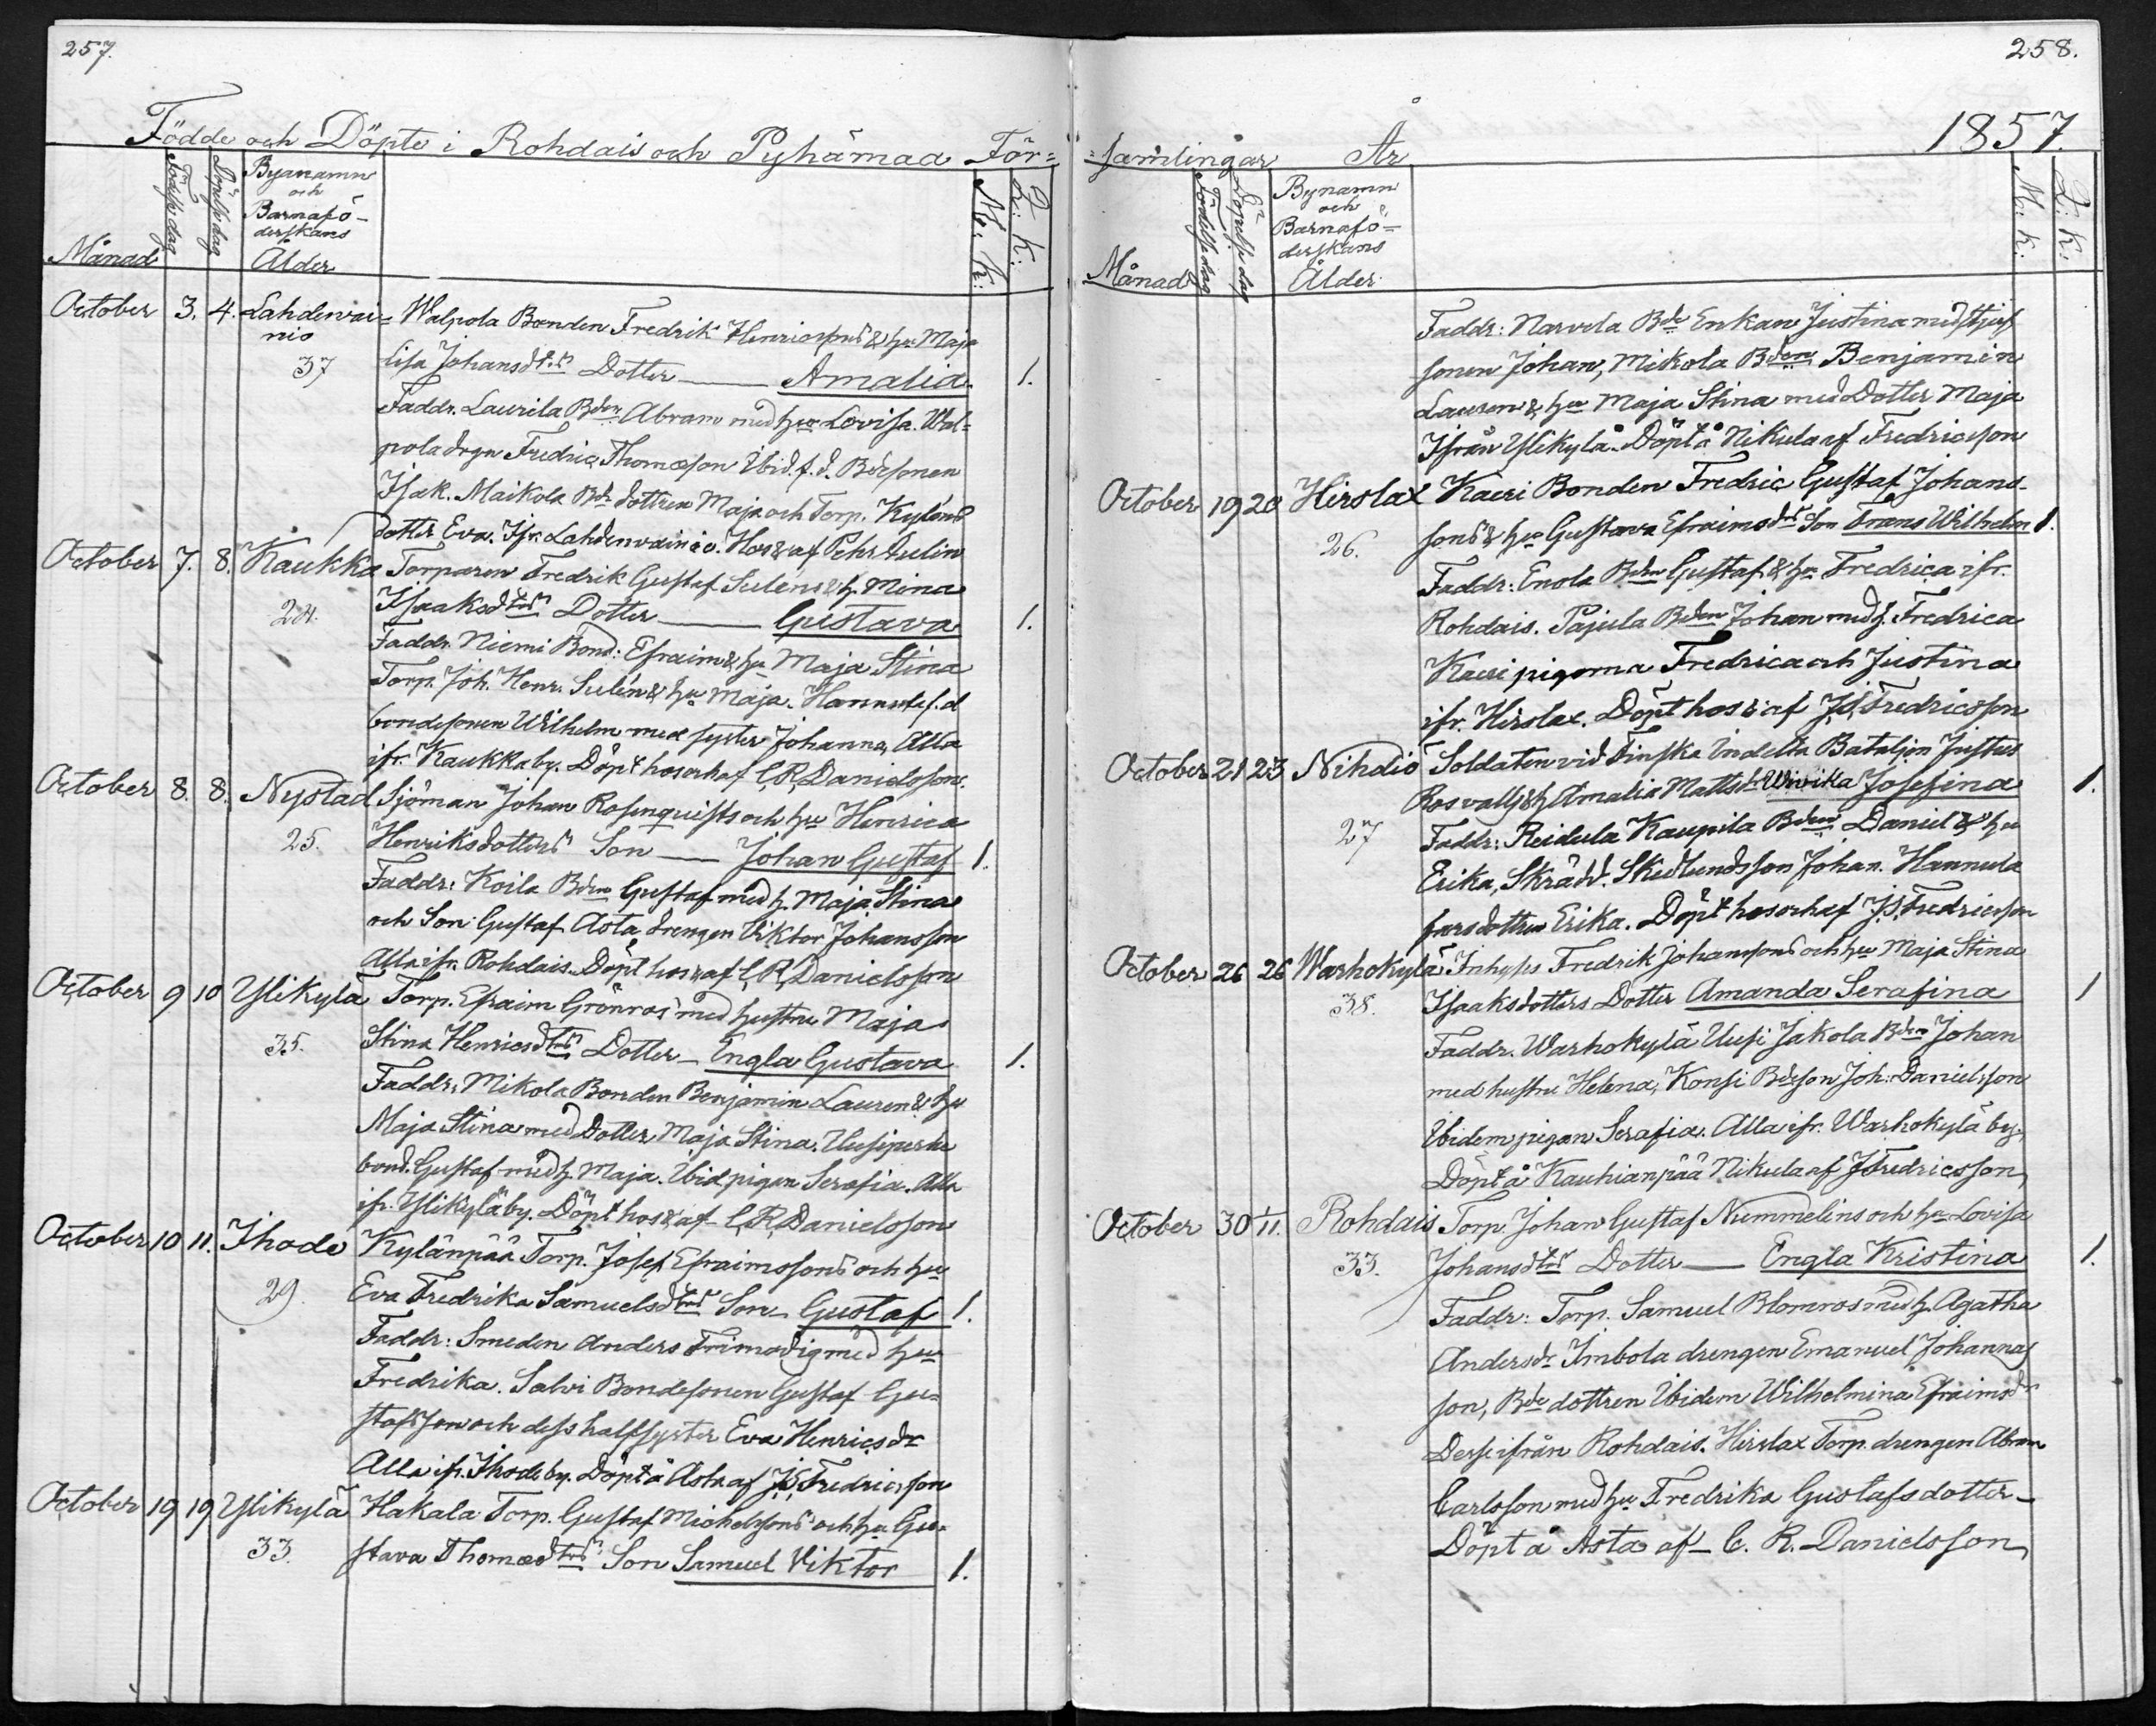 257.
Födde och Döpte i Rohdais och Pyhämaa För=
Månad
Födelse dag
Döpelse dag
Byanamn
och
Barnafö-
derskans
Ålder
M: K:
Q: K:
October 3. 4. Lahdenvai= Walpola Bonden Fredrik Henricssons & hu Maja
nio
37 Lisa Johansdtrs Dotter Amalia. 1.
Faddr. Laurila Bden Abram med hu Lovisa. Wal=
pola drgn Fredric Thomasson Ibid. f.d. Bdesonen
Isak. Maikola Bde dottren Maja och Torp. Kyléns
dotter Eva. Ifr. Lahdenvainio. Hos & af Pehr Sulin
October 7. 8. Kaukka Torparen Fredrik Gustaf Sulens & h. Mina
24. Isaaksdtrs Dotter Gustava 1.
Faddr. Niemi Bond: Efraim & hu Maja Stina
Torp. Joh. Henr. Sulén & hu Maja. Hannula f.d
bondesonen Wilhelm med syster Johanna, Alla
ifr. Kaukka by. Döpt hos och af C. R. Danielsson.
October 8. 8. Nystad Sjöman Johan Rosenquists och hu Henrica
25. Henriksdotters Son Johan Gustaf 1.
Faddr: Koila Bden Gustaf med h. Maja Stina
och Son Gustaf Asta drengen Viktor Johansson
Alla ifr. Rohdais. Döpt hos & af C. R. Danielsson
October 9 10 Ylikylä Torp. Efraim Grönros med hustru Maja
35. Stina Henricsdtrs Dotter Engla Gustava 1.
Faddr. Mikola Bonden Benjamin Lauren & hu
Maja Stina med Dotter Maja Stina. Uusiperhe
bond. Gustaf med h. Maja. Ibid pigan Serafia. Alla
ifr. Ylikylä by. Döpt hos & af C. R. Danielsson
October 10 11. Ihode Kylänpää Torp. Josef Efraimssons och hu
29. Eva Fredrika Samuelsdtrs Son Gustaf 1.
Faddr: Smeden Anders Frimodig med hu
Fredrika. Salvi Bondesonen Gustaf Gu=
stafsson och dess halfsyster Eva Henricsdr
Alla ifr. Ihode by. Döpt å Asta af J. S. Fredricsson
October 19 19 Ylikylä Hakala Torp. Gustaf Michelssons och hu Gu=
33. stava Thomasdtrs Son Samuel Viktor 1.
258.
=samlingar År 1857.
Månad
Födelse dag
Döpelse dag
Bynamn
och
Barnafö=
derskans
Ålder
M: K:
Q: K:
Faddr: Narvela Bde Enkan Justina med stjuf
sonen Johan, Mikola Bden Benjamin
Lauren & hu Maja Stina med Dotter Maja
Ifrån Ylikylä. Döpt å Nikula af Fredricsson
October 19 20 Hirslax Kaeri Bonden Fredric Gustaf Johans-
26. sons & hu Gustava Efraimsdtrs Son Frans Wilhelm 1.
Faddr: Enola Bden Gustaf & hu Fredrica ifr.
Rohdais. Pajula Bden Johan med h. Fredrica
Kaeri pigorna Fredrica och Justina
ifr. Hirslax. Döpt hos & af J. S. Fredricsson
October 21 23 Nihdiö Soldaten vid Finska Indelta Bataljon Justus
Rosvalls & h Amalia Mattsdt Ulvika Josefina 1.
27 Faddr: Reidula Kaupila Bden Daniel & hu
Erika, Skrädd. Skedlunds son Johan. Hannula
fars dottren Erika. Döpt hos och af J. S. Fredricsson
October 26 26 Warhokylä Inhyses Fredrik Johanssons och hu Maja Stina
38. Isaaksdotters Dotter Amanda Serafina 1
Faddr. Warhokylä Uusi Jakola Bden Johan
med hustru Helena, Konsi Bdeson Joh: Danielsson
Ibidem pigan Serafia. Alla ifr. Warhokylä by.
Döpt å Kauhianpää Nikula af J. Fredricsson
October 30 1/11. Rohdais Torp. Johan Gustaf Nummelins och hu Lovisa
33. Johansdtrs Dotter Engla Kristina 1.
Faddr: Torp. Samuel Blomros med h. Agatha
Andersdr Imbola drengen Emanuel Johannas
son, Bde dottren Ibidem Wilhelmina Efraimsdr
Desse ifrån Rohdais. Hirslax Torp. drengen Abram
Carlsson med hu Fredrika Gustafsdotter
Döpt å Asta af C. R. Danielsson